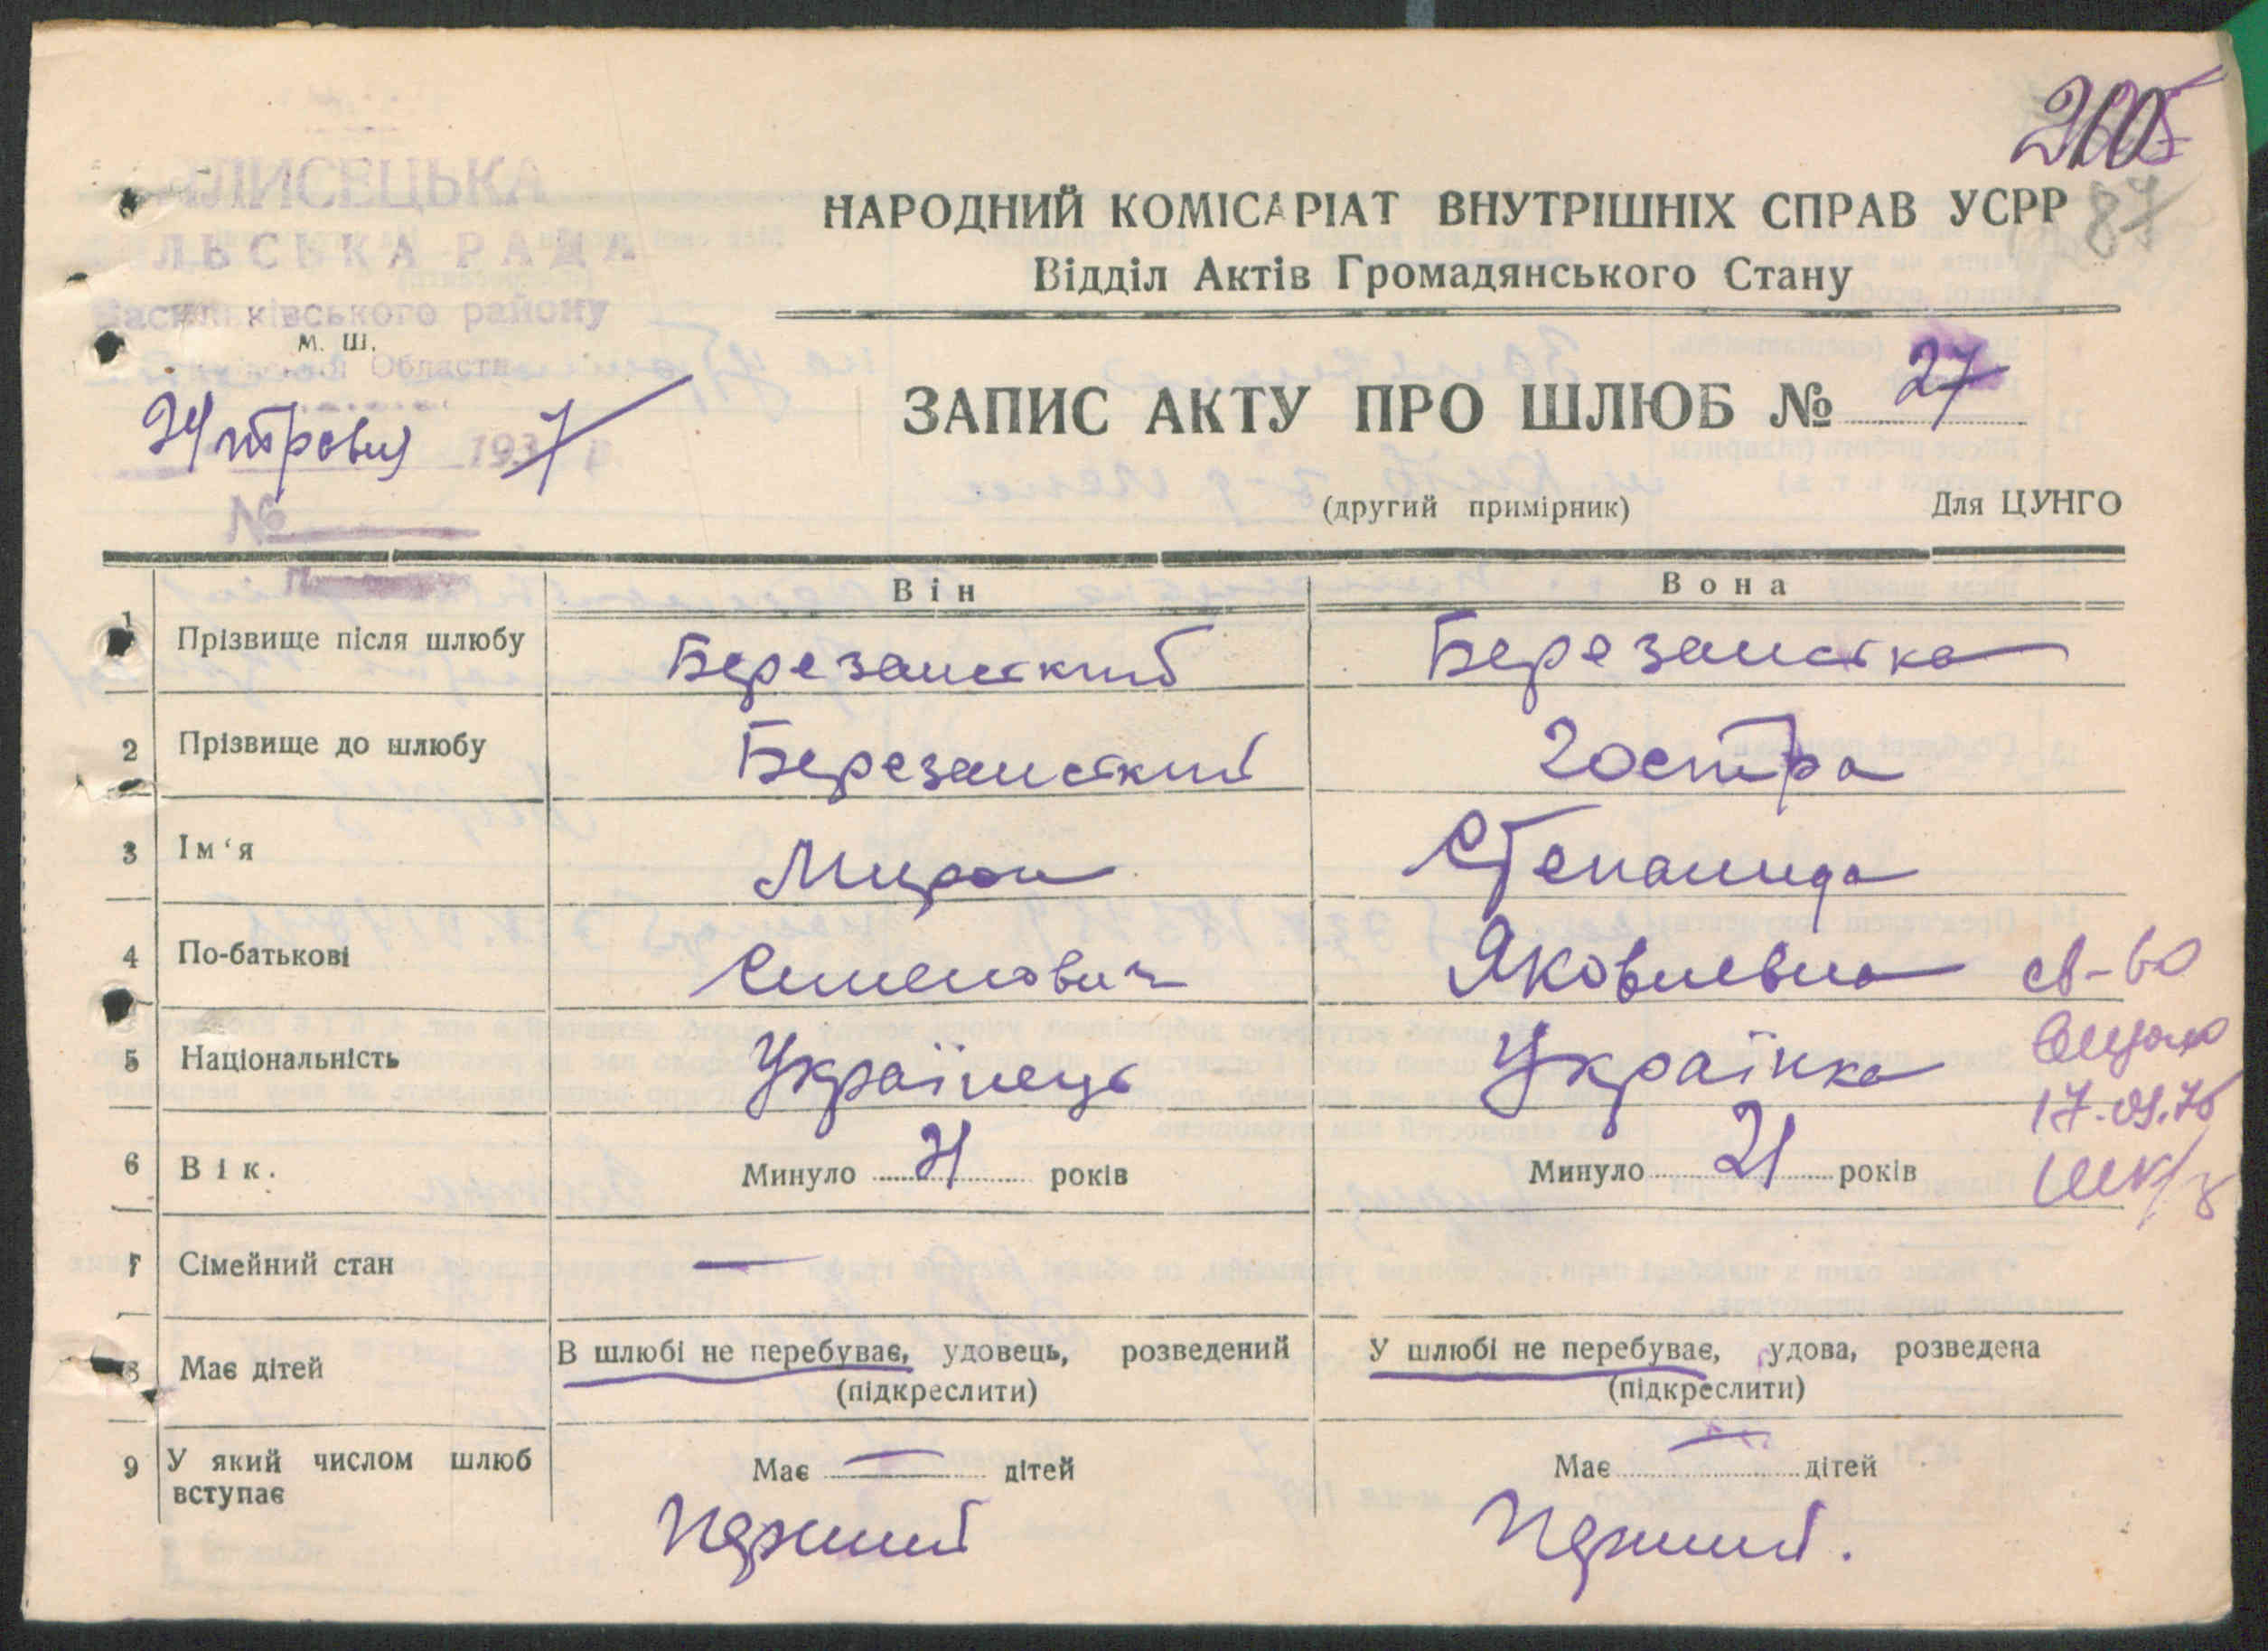 2105
87
ЛИСЕЦЬКА
ЛЬСЬКА РАДА
Васильківського району
Області
М. Ш.
НАРОДНИЙ КОМІСАРІАТ ВНУТРІШНІХ СПРАВ УСРР
Відділ Актів Громадянського Стану
ЗАПИС АКТУ ПРО ШЛЮБ № 27
24 травня 1937 р.
№
(другий примірник) Для ЦУНГО
Він Вона
1 Прізвище після шлюбу Березанский Березанська
2 Прізвище до шлюбу Березанский Гостра
3 Ім‘я Мирон Степанида
4 По-батькові Семенович Яковлевна св-во
5 Національність Українець Українка
17.09.76
6 Вік. Минуло 21 років Минуло 21 років
7 Сімейний стан —
8 Має дітей В шлюбі не перебуває, удовець, розведений У шлюбі не перебуває, удова, розведена
(підкреслити) (підкреслити)
9 У який числом шлюб вступає Має — дітей Має — дітей
Перший Перший.